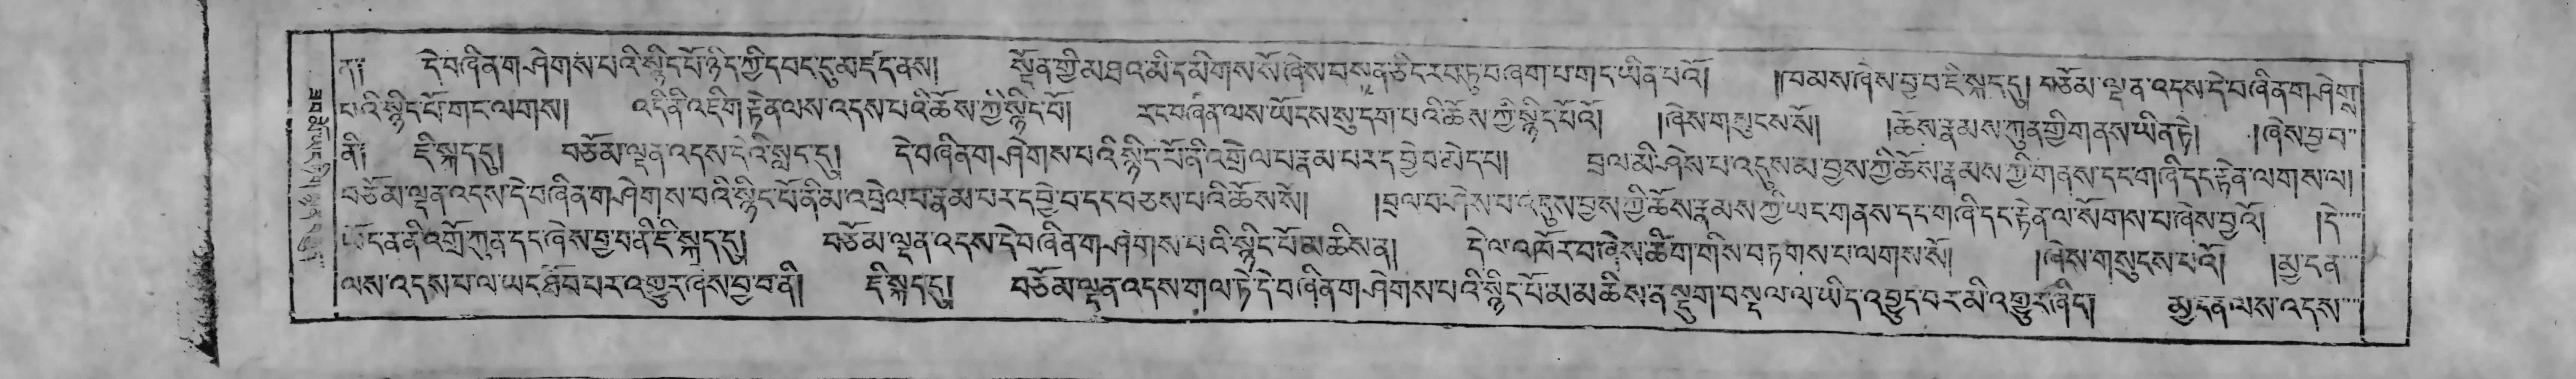 ན༑ དེ་བཞིན་གཤེགས་པའི་སྙིང་པོ་ཉིད་ཀྱི་དབང་དུ་མཛད་ནས། སྔོན་གྱི་མཐའ་མི་དམིགས་སོ་ཞེས་བསྟན་ཅིང་རབ་ཏུ་བཞག་པ་གང་ཡིན་པའོ། །ཁམས་ཞེས་བྱ་བ་ཇི་སྐད་དུ། བཅོམ་ལྡན་འདས་དེ་བཞིན་གཤེགས
པའི་སྙིང་པོ་གང་ལགས། འདི་ནི་འཇིག་རྟེན་ལས་འདས་པའི་ཆོས་ཀྱི་སྙིང་པོ། རང་བཞིན་ལས་ཡོངས་སུ་དག་པའི་ཆོས་ཀྱི་སྙིང་པོའོ། །ཞེས་གསུངས་སོ། །ཆོས་རྣམས་ཀུན་གྱི་གནས་ཡིན་ཏེ། །ཞེས་བྱ་བ
ནི༑ ཇི་སྐད་དུ། བཅོམ་ལྡན་འདས་དེའི་སླད་དུ། དེ་བཞིན་གཤེགས་པའི་སྙིང་པོ་ནི་འབྲེལ་པ་རྣམ་པར་དབྱེ་བ་མེད་པ། བྲལ་མི་ཤེས་པ་འདུས་མ་བྱས་ཀྱི་ཆོས་རྣམས་ཀྱི་གནས་དང་གཞི་དང་རྟེན་ལགས་ལ།
བཅོམ་ལྡན་འདས་དེ་བཞིན་གཤེགས་པའི་སྙིང་པོ་ནི་མ་འབྲེལ་བ་རྣམ་པར་དབྱེ་བ་དང་བཅས་པའི་ཆོས་སོ། །བྲལ་བར་ཤེས་པ་འདུས་བྱས་ཀྱི་ཆོས་རྣམས་ཀྱི་ཡང་གནས་དང་གཞི་དང་རྟེན་ལ་སོགས་པ་ཞེས་བྱའོ། །དེ
ཡོད་ན་ནི་འགྲོ་ཀུན་དང་ཞེས་བྱ་བ་ནི་ཇི་སྐད་དུ། བཅོམ་ལྡན་འདས་དེ་བཞིན་གཤེགས་པའི་སྙིང་པོ་མཆིས་ན། དེ་ལ་འཁོར་བ་ཞེས་ཚིག་གིས་བཏགས་པ་ལགས་སོ། །ཞེས་གསུངས་པའོ། །མྱ་ངན
ལས་འདས་པ་ལ་ཡང་ཐོབ་པར་འགྱུར་ཞེས་བྱ་བ་ནི། ཇི་སྐད་དུ། བཅོམ་ལྡན་འདས་གལ་ཏེ་དེ་བཞིན་གཤེགས་པའི་སྙིང་པོ་མ་མཆིས་ན་སྡུག་བསྔལ་ལ་ཡིད་འབྱུང་བར་མི་འགྱུར་ཞིང། མྱ་ངན་ལས་འདས